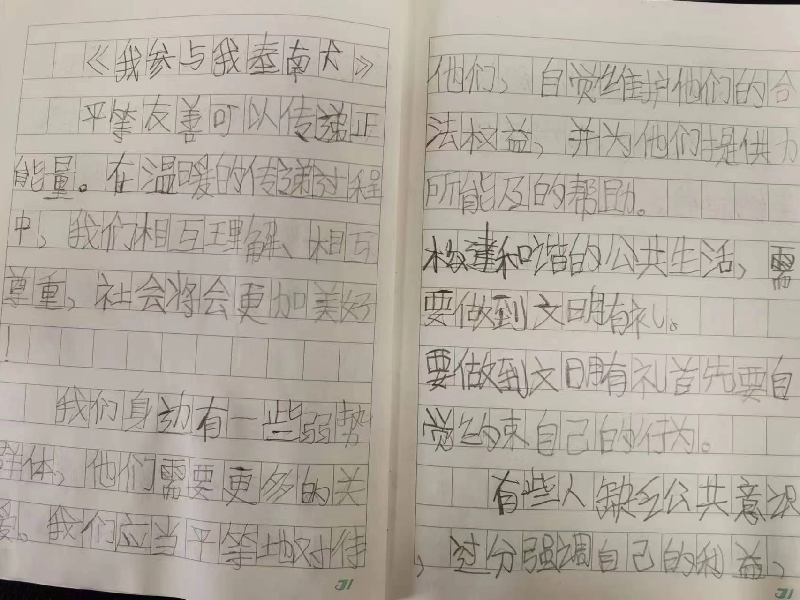 《我参与我奉南大》
平等友善可以传递正
能量。在温暖的传递过程
中，我们相互理解、相互
尊重，社会将会更加美好
！
我们身动有一些弱势
群体，他们需要更多的关
爱。我们应当平等地对待
他们，自觉维护他们的合
法权益，并为他们提供力
所能及的帮助。
构建和谐的公共生活，需
要做到文明有礼。
要做到文明有礼首先要自
觉约束自己的行为。
有些人缺乏公共意识
，过分强调自己的利益，